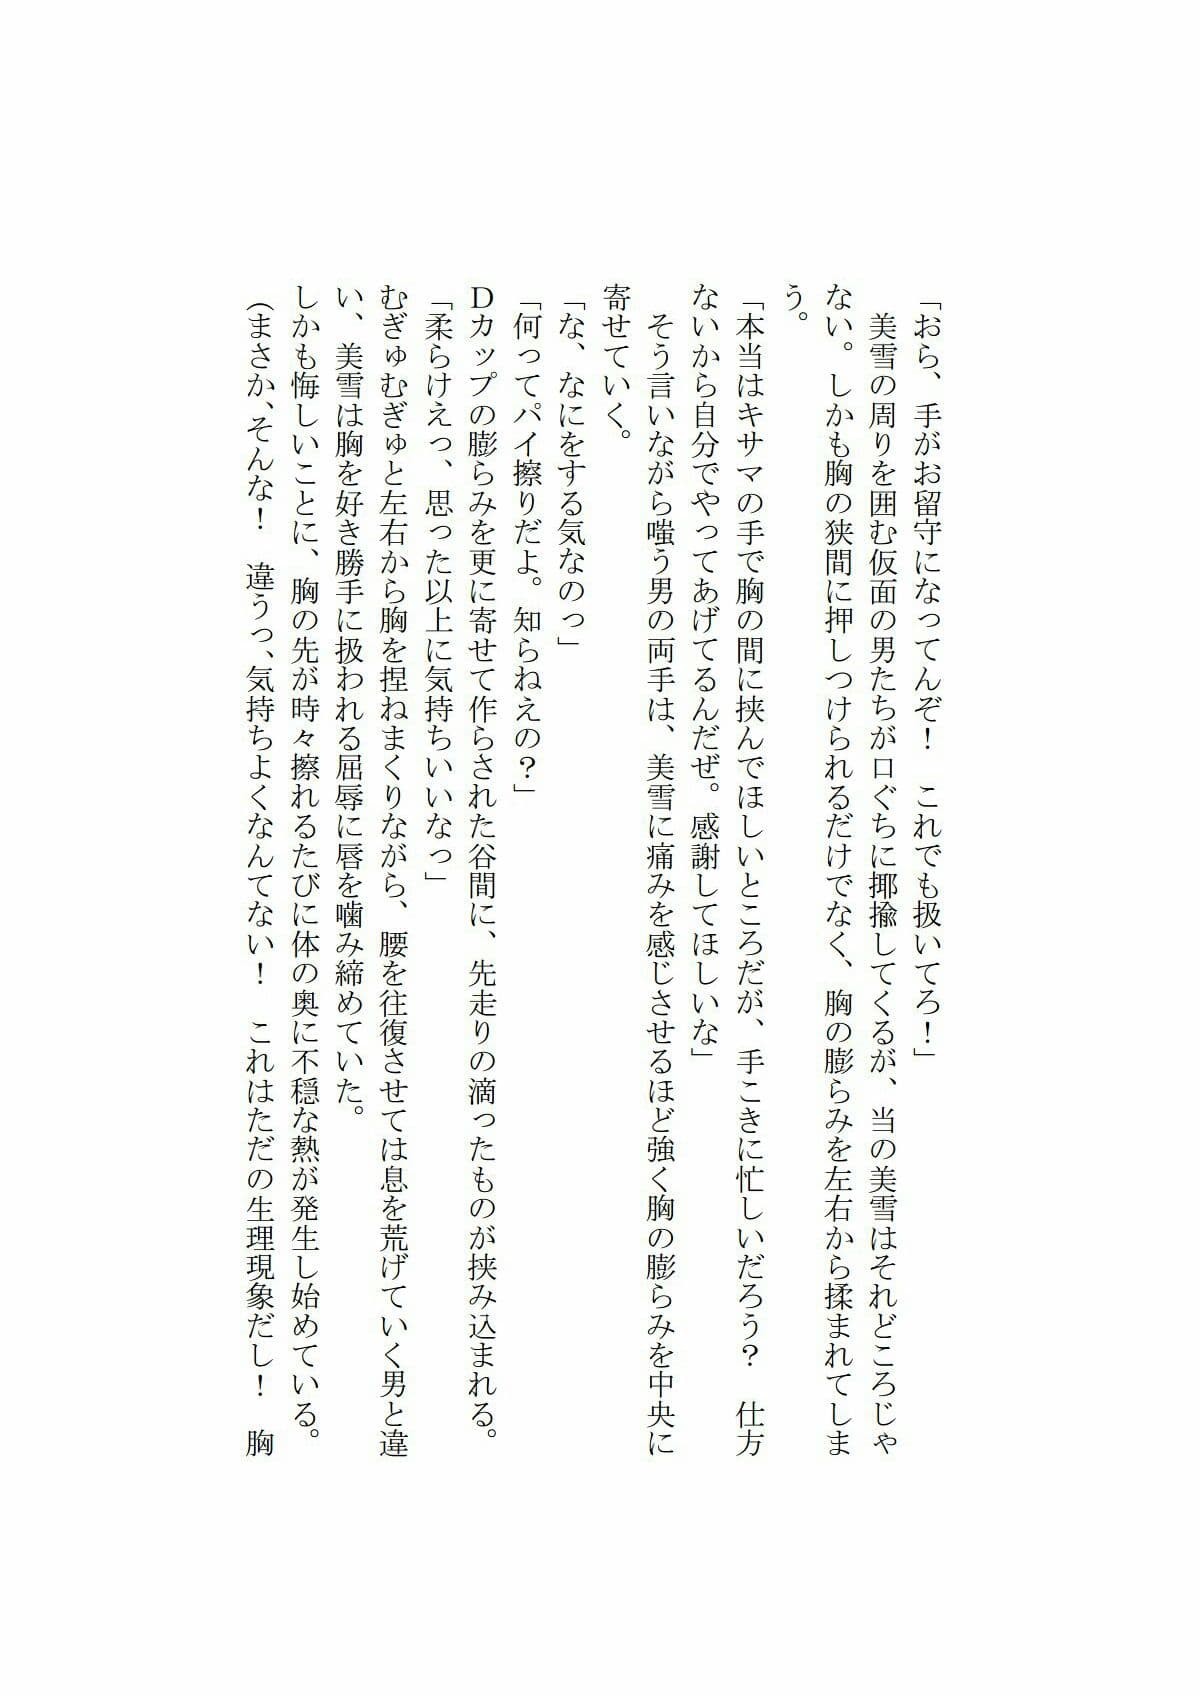 「おら、手がお留守になってんぞ！　これでも扱いてろ！」
　美雪の周りを囲む仮面の男たちが口ぐちに揶揄してくるが、当の美雪はそれどころじゃ
ない。しかも胸の狭間に押しつけられるだけでなく、胸の膨らみを左右から揉まれてしま
う。
「本当はキサマの手で胸の間に挟んでほしいところだが、手こきに忙しいだろう？　仕方
ないから自分でやってあげてるんだぜ。感謝してほしいな」
　そう言いながら嗤う男の両手は、美雪に痛みを感じさせるほど強く胸の膨らみを中央に
寄せていく。
「な、なにをする気なのっ」
「何ってパイ擦りだよ。知らねえの？」
Ｄカップの膨らみを更に寄せて作らされた谷間に、先走りの滴ったものが挟み込まれる。
「柔らけえっ、思った以上に気持ちいいなっ」
むぎゅむぎゅと左右から胸を捏ねまくりながら、腰を往復させては息を荒げていく男と違
い、美雪は胸を好き勝手に扱われる屈辱に唇を噛み締めていた。
しかも悔しいことに、胸の先が時々擦れるたびに体の奥に不穏な熱が発生し始めている。
（まさか、そんな！　違うっ、気持ちよくなんてない！　これはただの生理現象だし！　胸